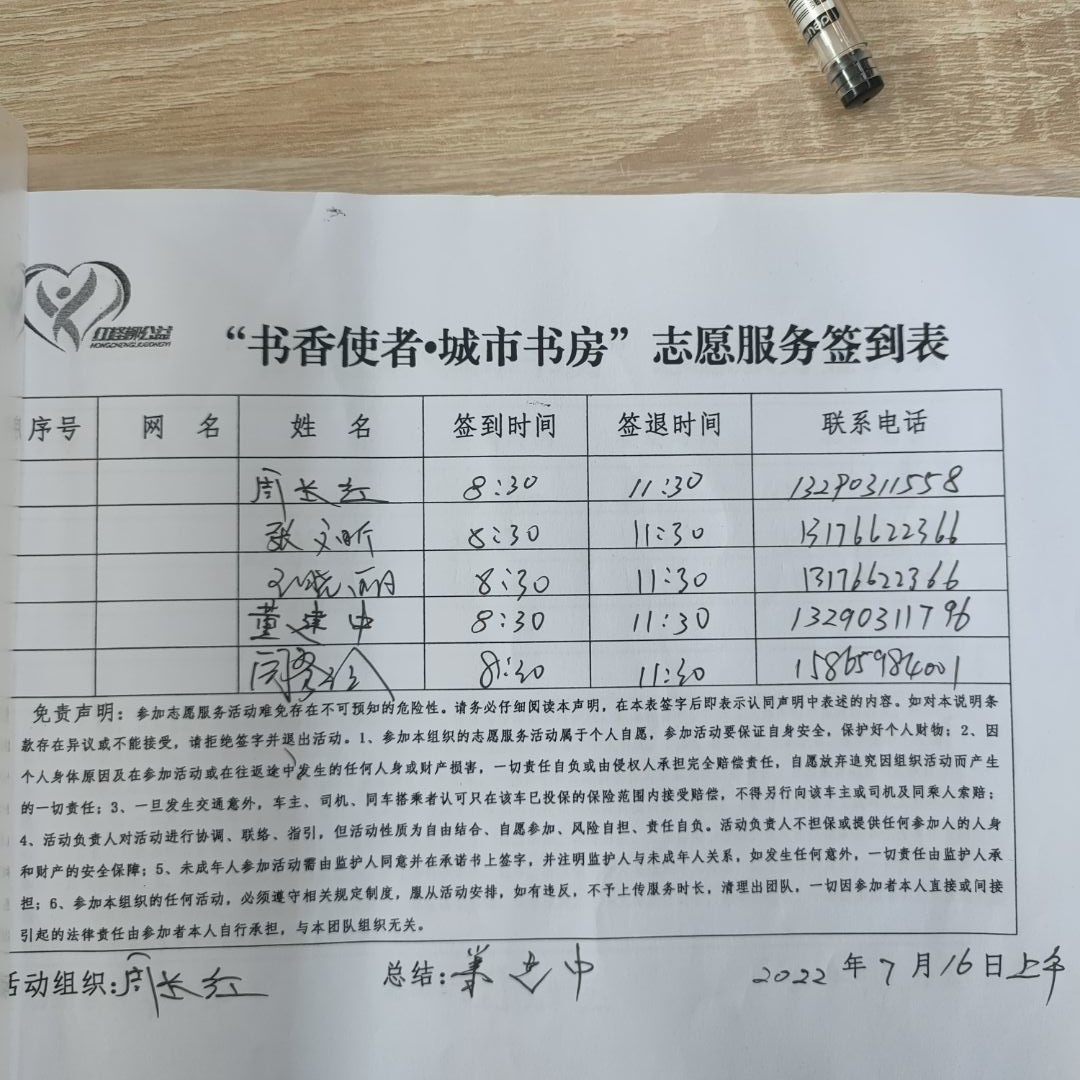 红柽柳公益
HONGCHENGLIUGONGYI
“书香使者•城市书房”志愿服务签到表
序号 网 名 姓 名 签到时间 签退时间 联系电话
周长红 8:30 11:30 13290311558
张文昕 8:30 11:30 13176622366
孙晓丽 8:30 11:30 13176622366
董建中 8:30 11:30 13290311796
8:30 11:30 15865984001
免责声明：参加志愿服务活动难免存在不可预知的危险性。请务必仔细阅读本声明，在本表签字后即表示认同声明中表述的内容。如对本说明条
款存在异议或不能接受，请拒绝签字并退出活动。1、参加本组织的志愿服务活动属于个人自愿，参加活动要保证自身安全，保护好个人财物；2、因
个人身体原因及在参加活动或在往返途中发生的任何人身或财产损害，一切责任自负或由侵权人承担完全赔偿责任，自愿放弃追究因组织活动而产生
的一切责任；3、一旦发生交通意外，车主、司机、同车搭乘者认可只在该车已投保的保险范围内接受赔偿，不得另行向该车主或司机及同乘人索赔；
4、活动负责人对活动进行协调、联络、指引，但活动性质为自由结合、自愿参加、风险自担、责任自负。活动负责人不担保或提供任何参加人的人身
和财产的安全保障；5、未成年人参加活动需由监护人同意并在承诺书上签字，并注明监护人与未成年人关系，如发生任何意外，一切责任由监护人承
担；6、参加本组织的任何活动，必须遵守相关规定制度，服从活动安排，如有违反，不予上传服务时长，清理出团队，一切因参加者本人直接或间接
引起的法律责任由参加者本人自行承担，与本团队组织无关。
活动组织：周长红 总结：董建中 2022年7月16日上午